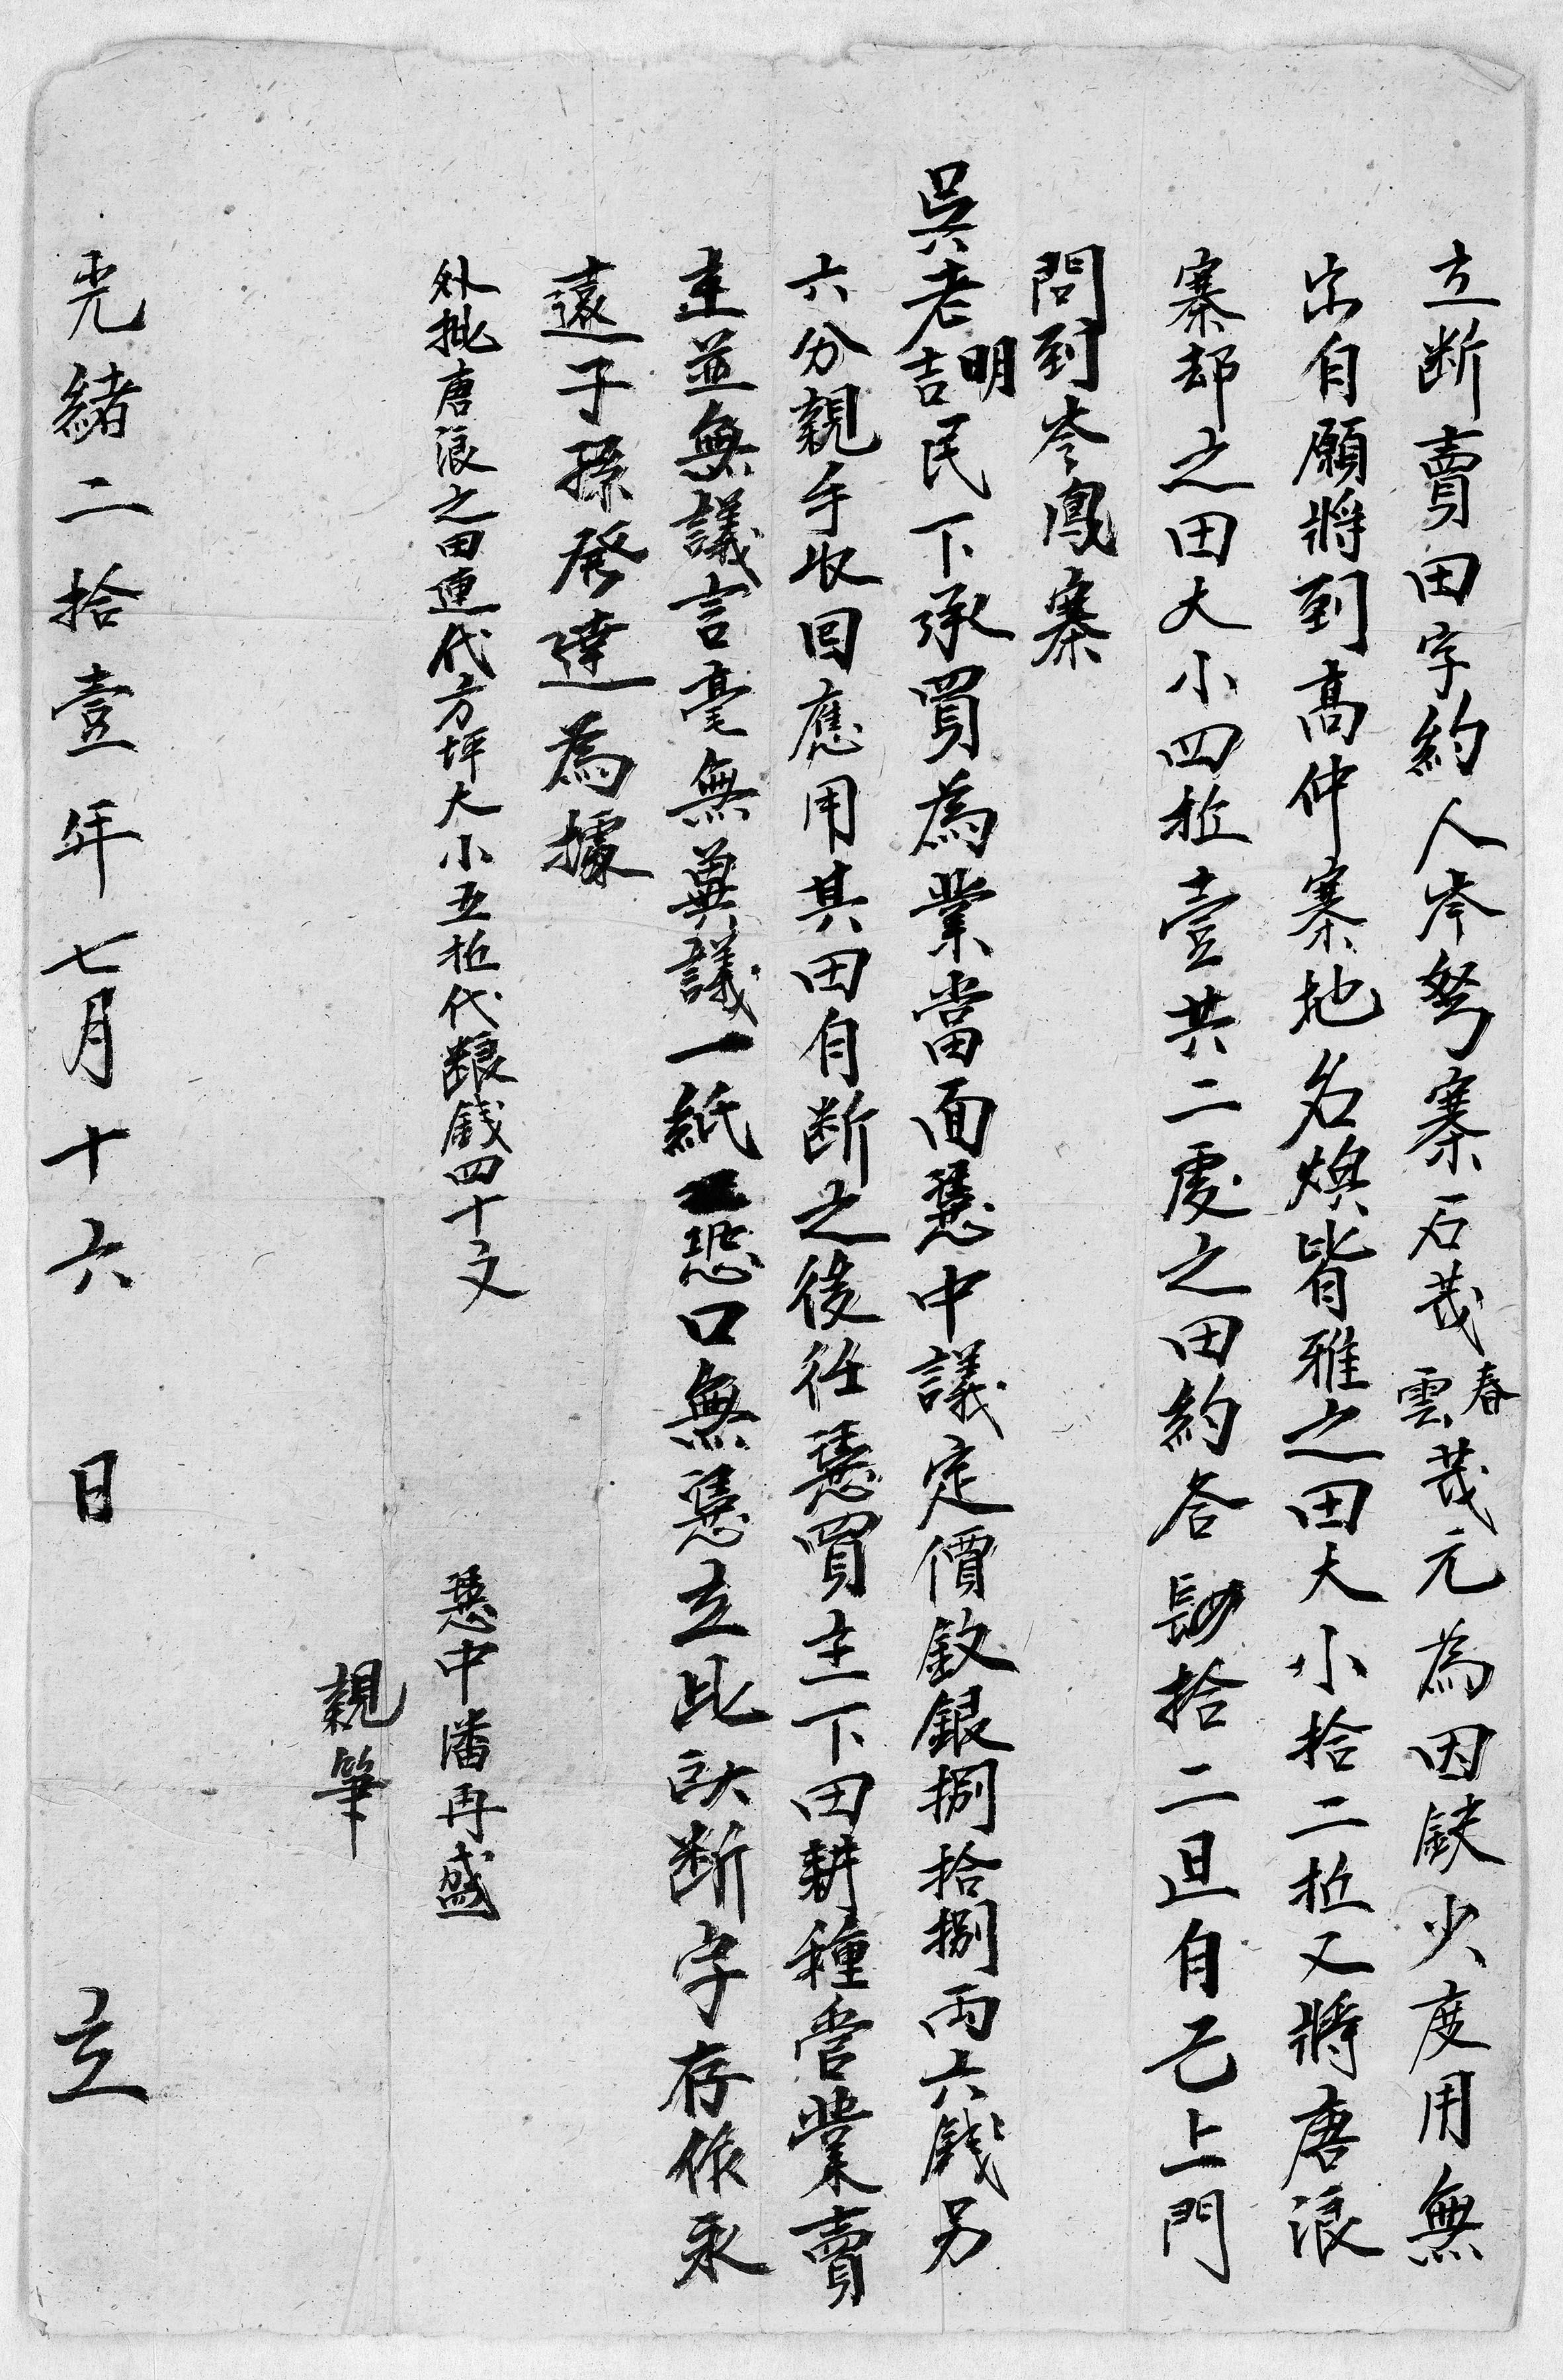 立断賣田字約人岑弩寨石茂春雲茂元為因缺少度用無
出自願將到高仲寨地名煥皆雅之田大小拾二坵又將唐浪
寨却之田大小四坵壹共二處之田約谷 拾二旦自己上門
問到岑鳳寨
吳老吉明民下承買為業當面憑中議定價紋銀捌拾捌両六錢另
六分親手收回應用其田自断之後任憑買主下田耕種營業賣
主並無議言毫無異議一紙恐口無憑立此 断字存作永
遠子孫發達為據
外批唐浪之田連代方坪大小五坵代粮錢四十文
憑中潘再盛
親筆
光緒二拾壹年七月十六日立